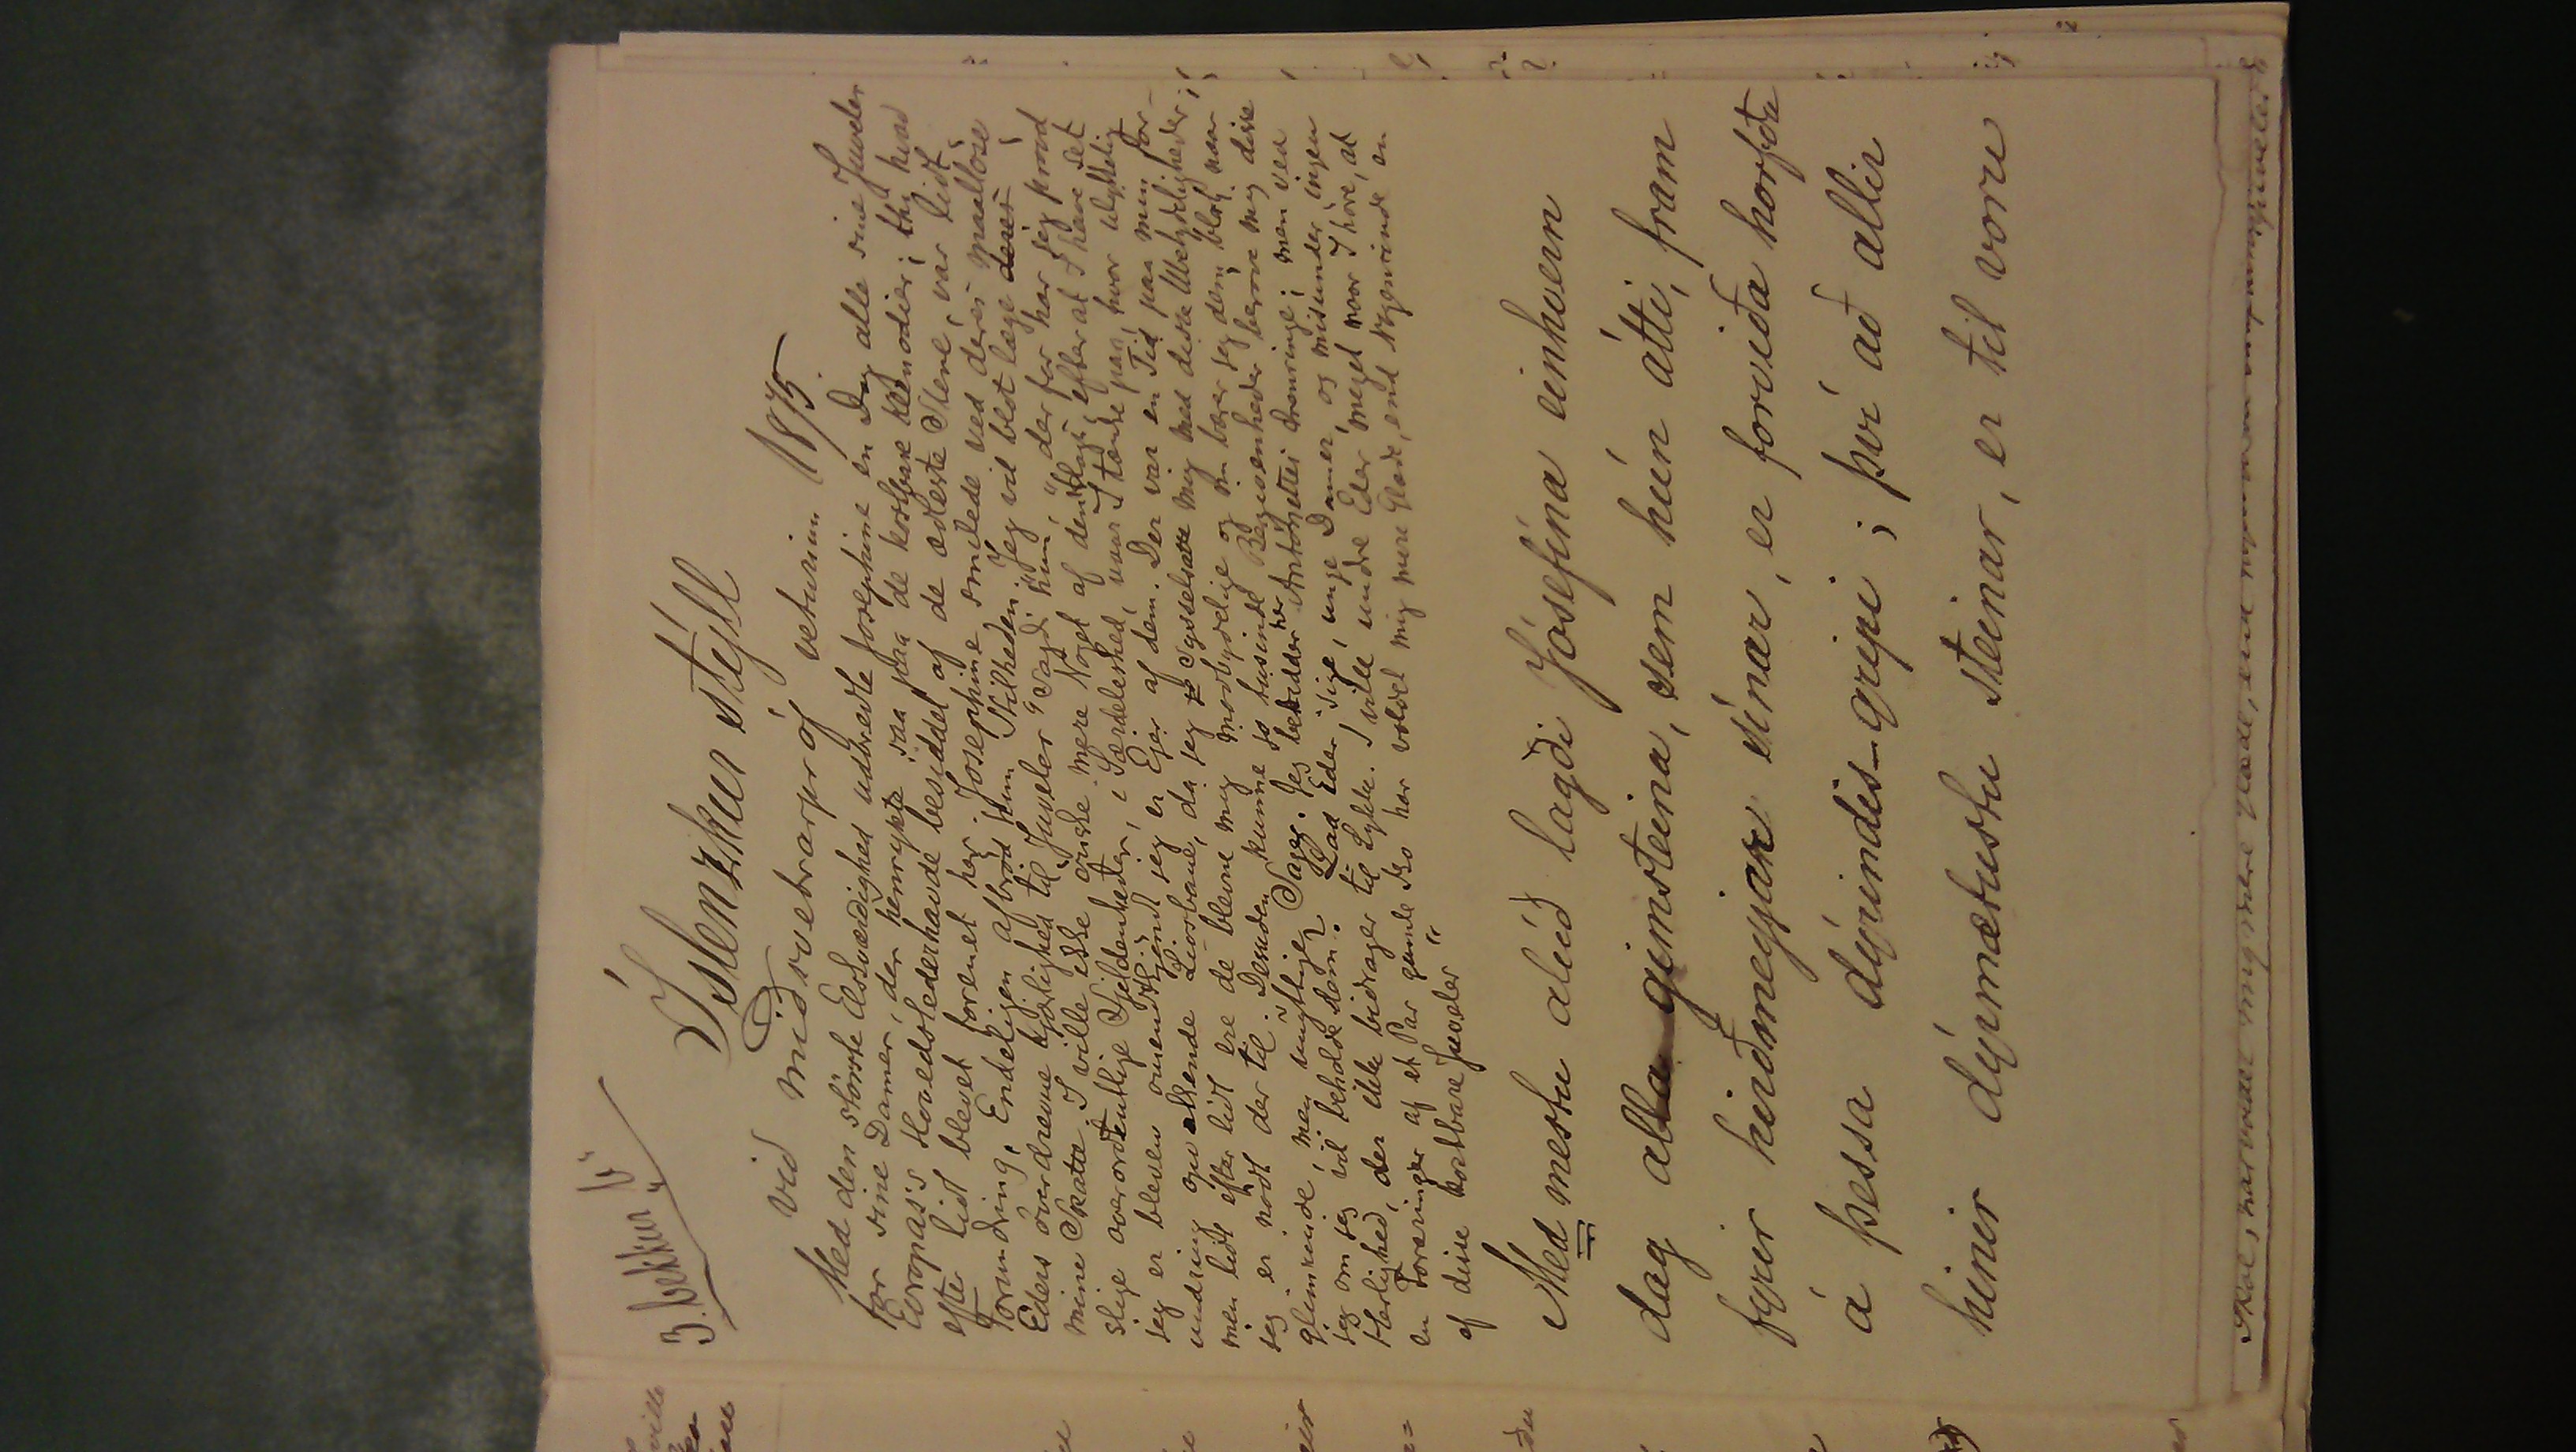 3. bekkur b"
Íslenzkur stýll
við miðsvetrarpróf veturinn 1875.
Med den störste Elskværdighed udbredte Josephine en Dag alle sine Juveler
for sine Damer, der henrykte saa paa de kostbare Klenodier; thi hvad
Evropas's Hovedstederhavde besiddet af de ædleste Stene, var lidt
efter lidt blevet forenet her. Josephine smilede ved deres maallöse
Forundring. Endeligen afbröd hun Stilheden. "Jeg vil blot læge
Eders overdrevne Kjærlighed til Juveler" sagde hun, "derfor har jeg
mine Skatte. I ville ikke önske mere Noget af den Slags, efter at I have set
slige overordentlige Sjeldenheder, i Særdeleshed, naar I tænke paa, hvor ulykkelig
jeg er bleven omendskjöndt jeg er Ejer af dem. Der var en Tid paa min for-
undring opvækkende Livsbane, da jeg sysselsatte mig med disse Ubetydeligheder;
men lidt efter lidt ere de blevne mig modbydelige og nu bærer jeg dem blot, naar
jeg er nödt der til. Desuden kunne jo tusinde Begivenheder beröve mig disse
glimrende, men unyttige Sager. Jeg besidder her Antoinettes Örenringe; men ved
jeg om jeg vil beholde dem? Lad Eder sige, unge Damer, og misunder ingen
Herlighed, der ikke bidrager til Lykke. I ville undre Eder meget naar I höre, at
en Foræringer af et Par gamle Sko har voldet mig mere Glæde, end nogensinde en
af disse kostbare Juveler"
Með mestu alúð lagði Jósefína einhvern
dag alla gimsteina, sem hún átti, fram
fyrir hirðmeyjar sínar, er forviða horfðu
á þessa dýrindis-gripi; því að allir
hinir dýrmætustu steinar, er til voru
Sko, har voldet mig mere Glæde, end